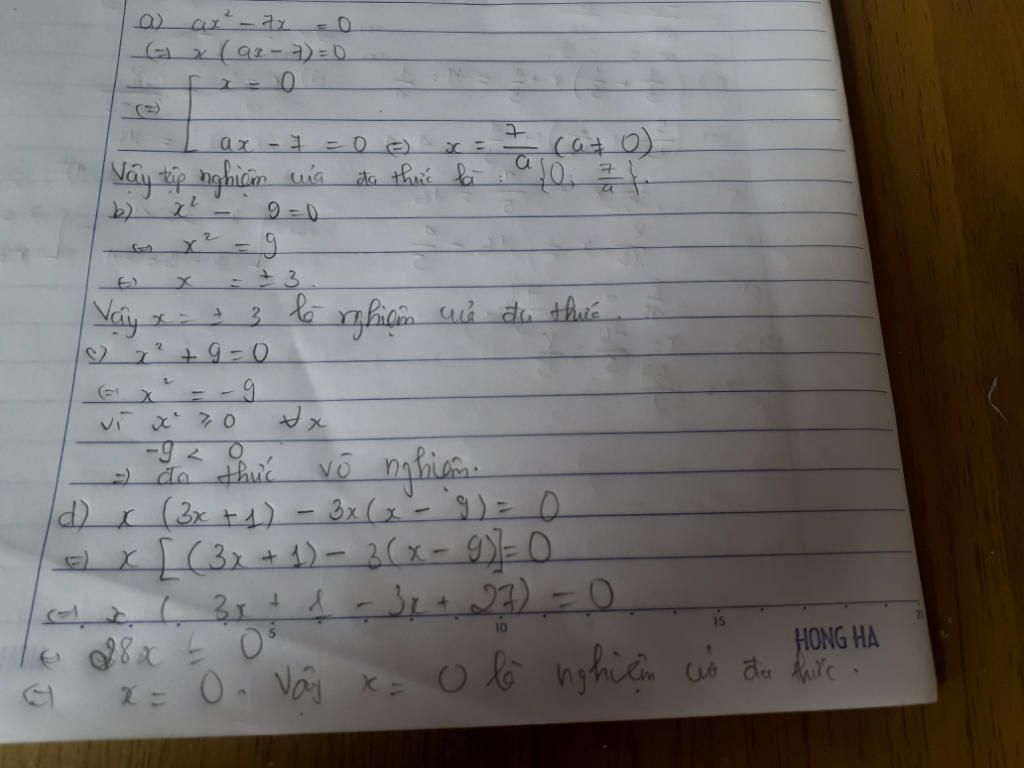 a) ax² - 7x = 0
(=) x (ax - 7) = 0
(=) [ x = 0
ax - 7 = 0 (=) x = 7/a (a ≠ 0)
Vậy tập nghiệm của đa thức là : {0; 7/a}.
b) x² - 9 = 0
(=) x² = 9
(=) x = ± 3.
Vậy x = ± 3 là nghiệm của đa thức.
c) x² + 9 = 0
(=) x² = - 9
vì x² ≥ 0 ∀x
-9 < 0
=) đa thức vô nghiệm.
d) x (3x + 1) - 3x (x - 9) = 0
(=) x [(3x + 1) - 3(x - 9)] = 0
(=) x ( 3x + 1 - 3x + 27) = 0
5 10 15
HONG HA
(=) 28x = 0
(=) x = 0. Vậy x = 0 là nghiệm của đa thức.